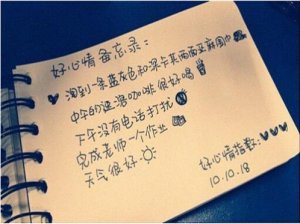 好心情备忘录：
淘到一条蓝灰色和深卡其两面亚麻围巾
中午的速溶咖啡很好喝
下午没有电话打扰
完成老师一个作业
天气很好
好心情指数：
10.10.18